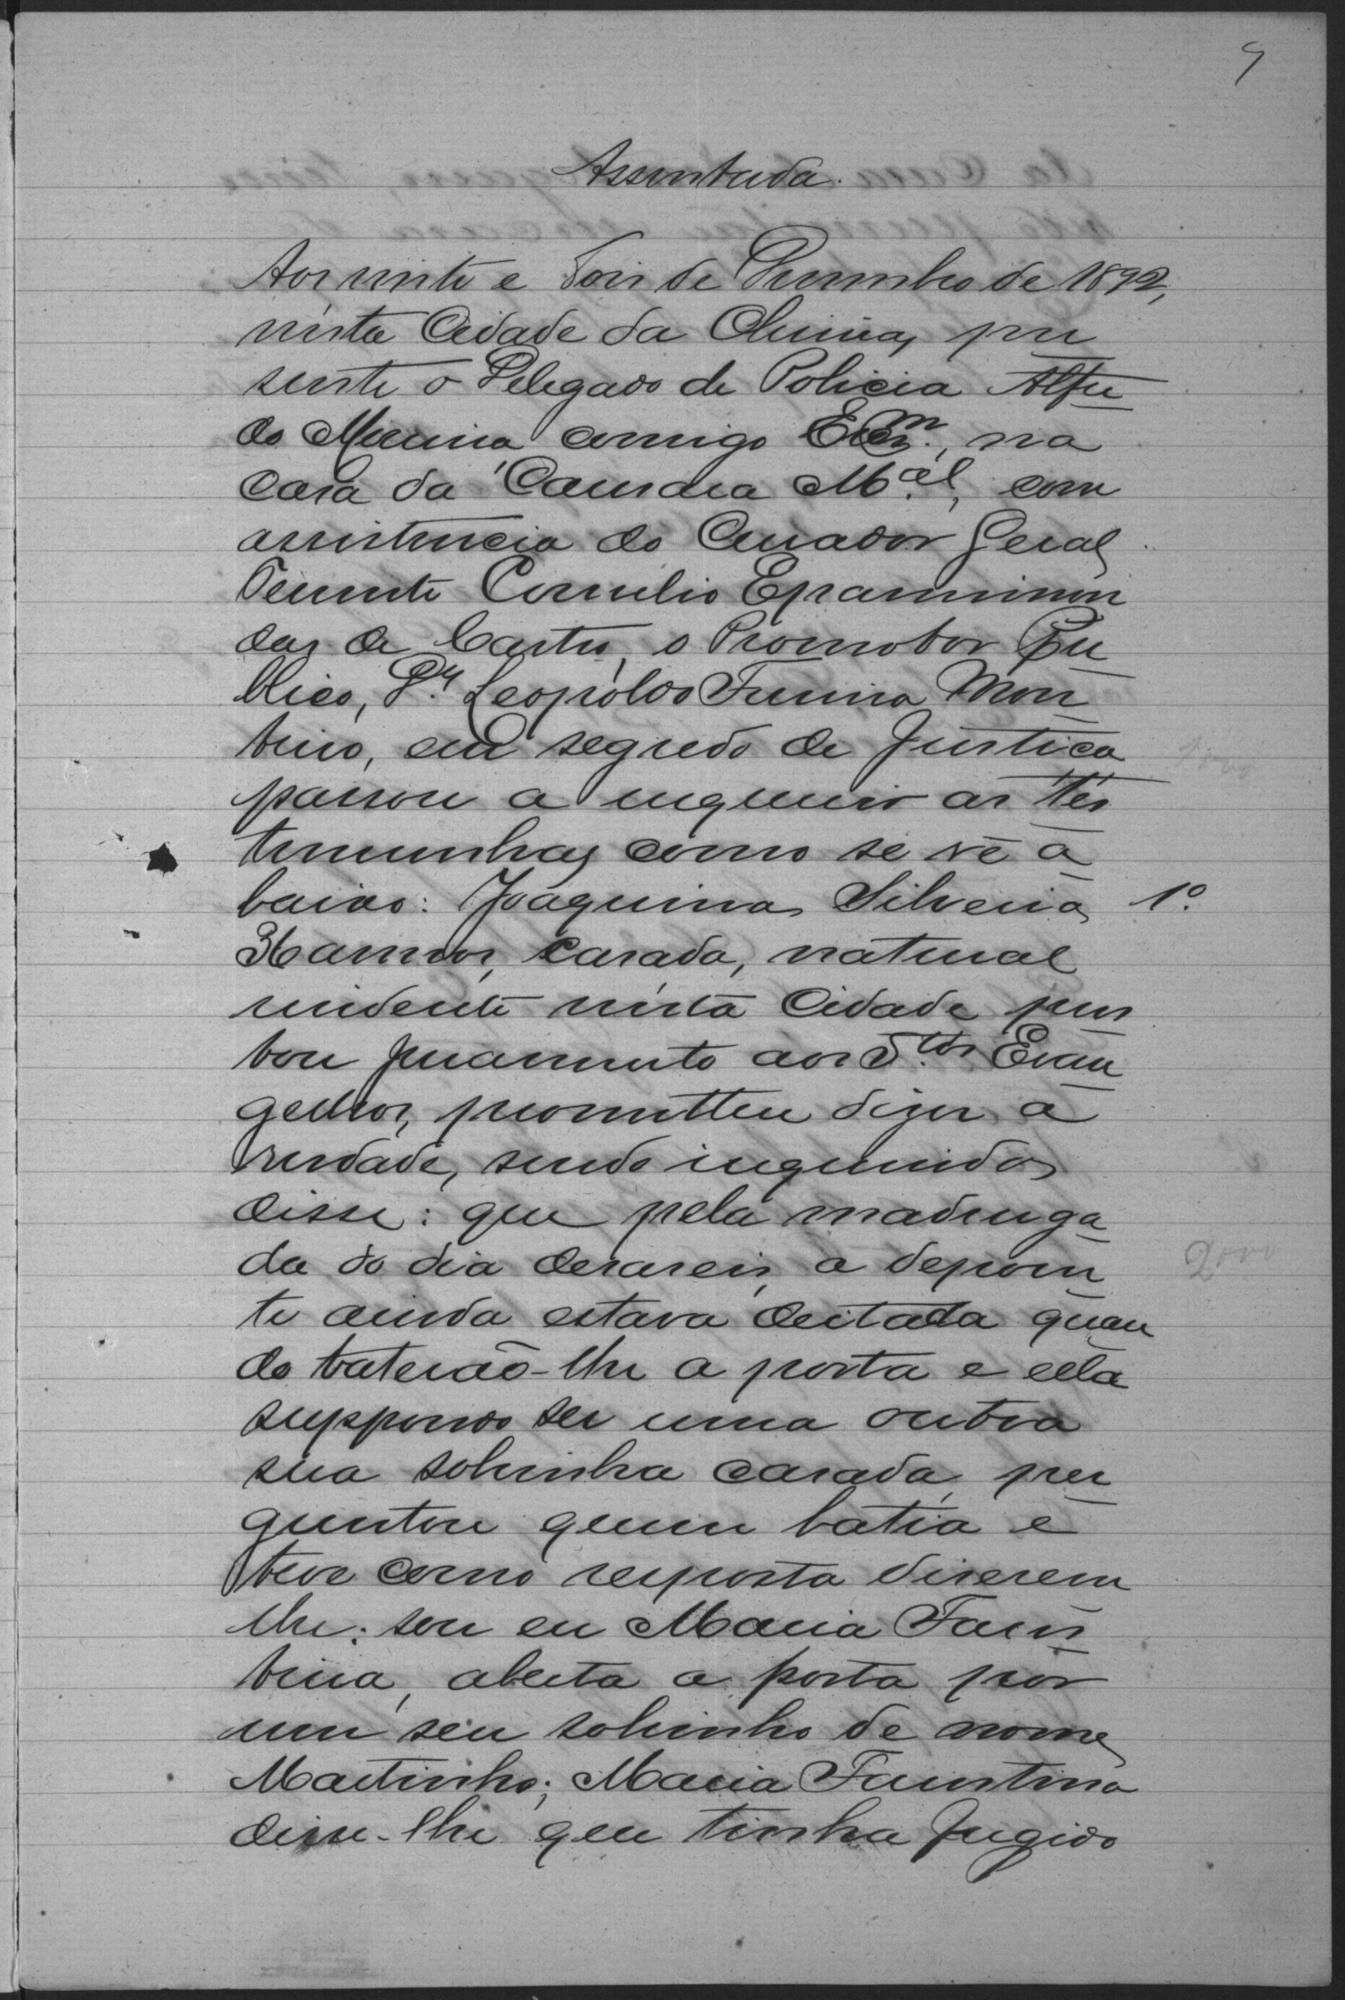 9
Assentada.
Aos vinte e dois de Dezembro de 1892,
nesta Cidade da Oliveira, pre
sente o Delegado de Policia Alfre
do comigo Escm., na
Casa da Camara Mal., com
assistencia do Curador Geral
Tenente Cornelio Epaminon
das de Castro, o Promotor Pu
blico, Dr. Leopoldo Ferreira Mon
teiro, em segredo de Justiça
passou a inquerir as tes
temunhas como se vê a
baixo: Joaquina Silveria 1º.
Ramos, casada, natural
residente nesta Cidade pres
tou juramento aos Stos. Evan
gelhos, prometteu dizer a
verdade, sendo inquerida
disse: que pela madruga
da do dia deseseis, a depoen
te ainda estava deitada quan
do baterão-lhe a porta e ella
suppondo ser uma outra
sua sobrinha casada, per
guntou quem batia e
teve como resposta diserem
lhe: sou eu Maria Faus
tina, aberta a porta por
um seu sobrinho de nome
Martinho; Maria Faustina
disse-lhe que tinha fugido
2000